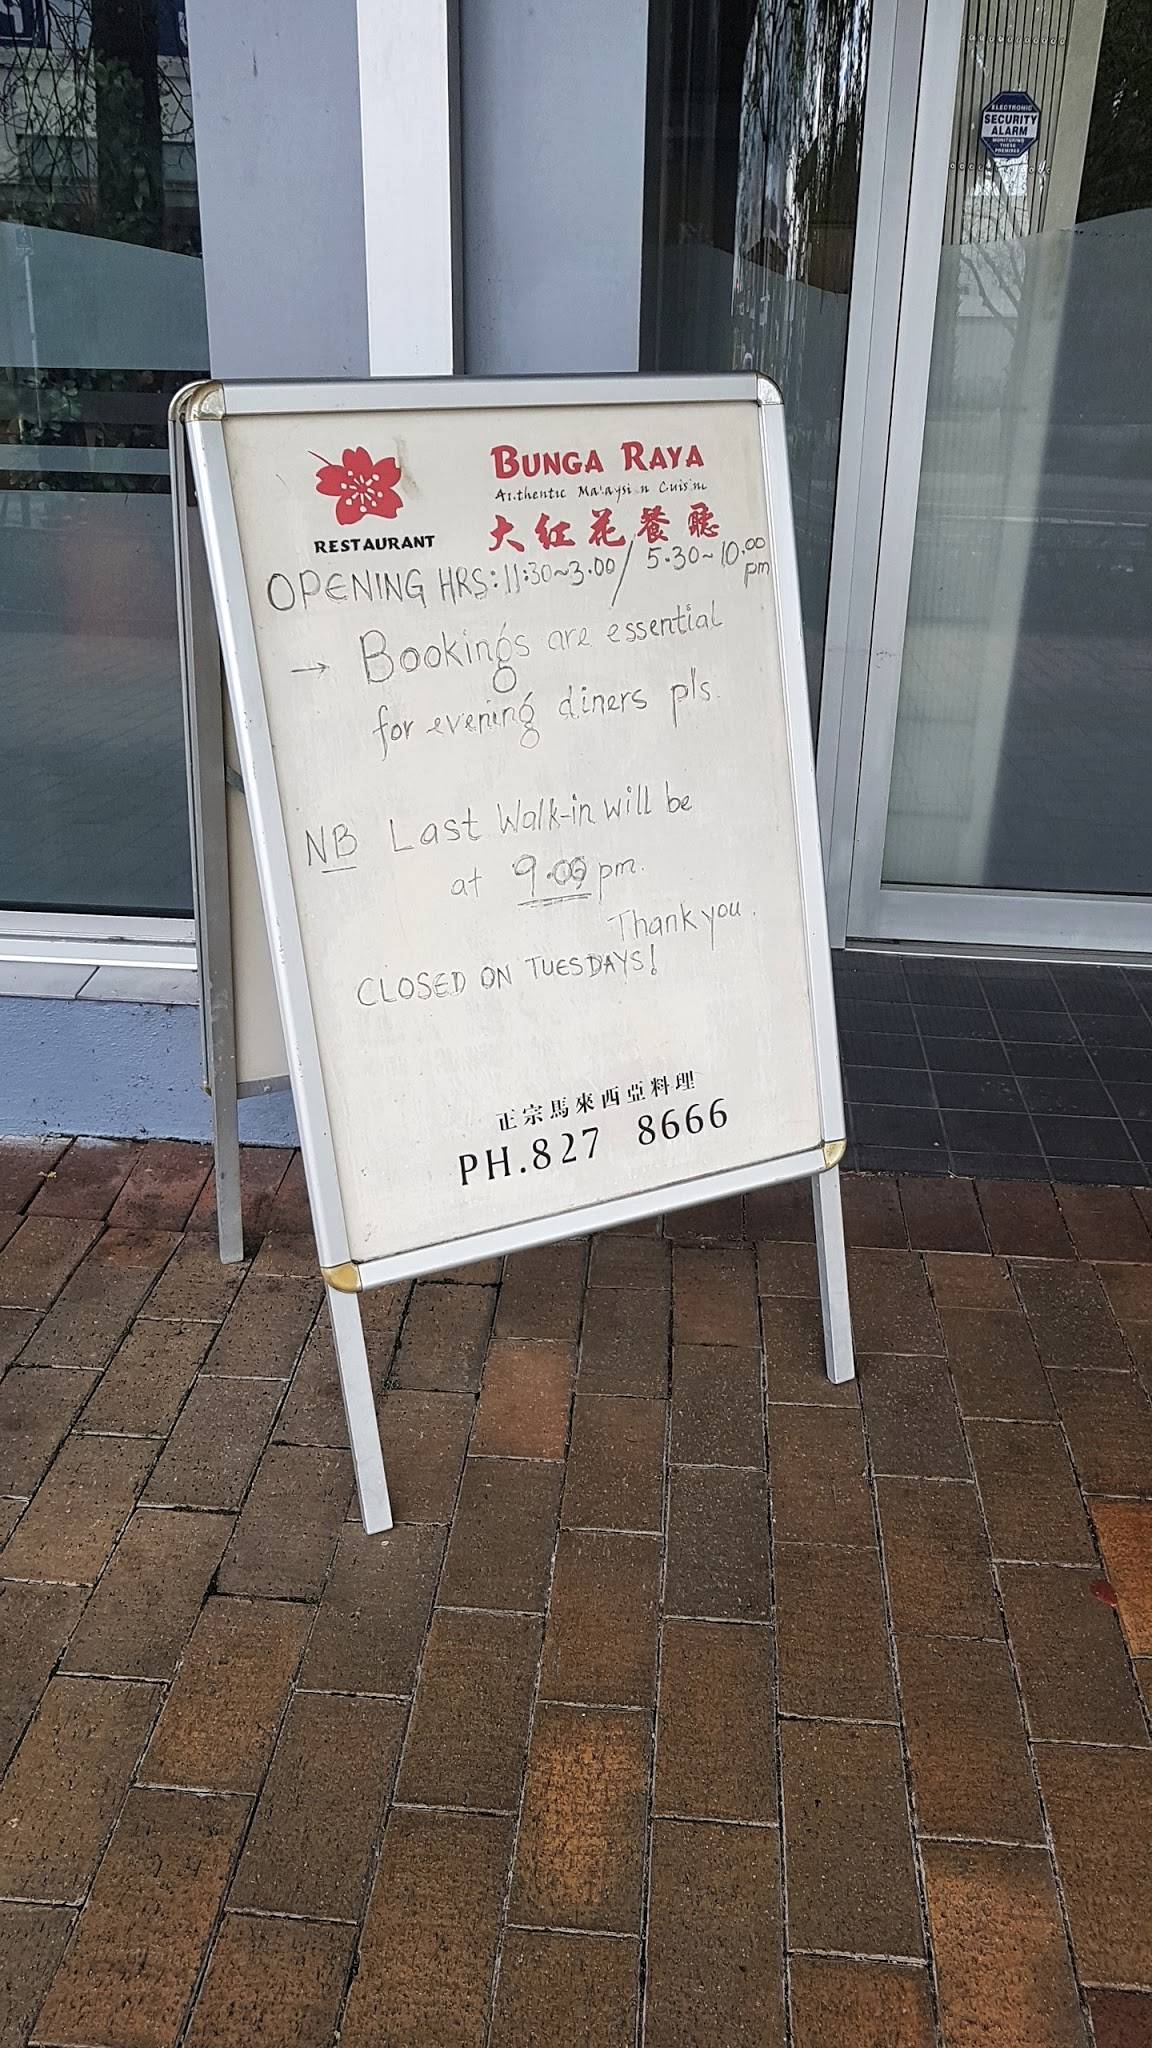 ELECTRONIC
SECURITY
ALARM
MONITORING
THESE
PREMISES
BUNGA RAYA
Authentic Malaysi n Cuisine
大红花餐廳
RESTAURANT
OPENING HRS: 11:30~3.00 / 5.30~10.00 pm
→ Bookings are essential
for evening diners pls.
NB Last Walk-in will be
at 9.00 pm.
Thank you.
CLOSED ON TUESDAYS!
正宗馬來西亞料理
PH.827 8666